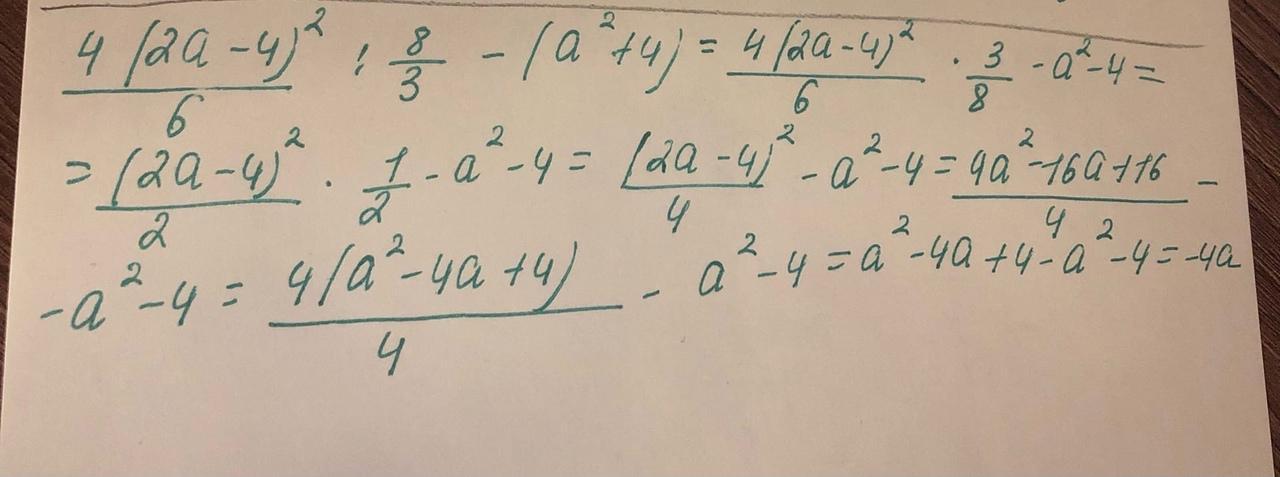 4(2a-4)²/6 : 8/3 - (a²+4) = 4(2a-4)²/6 · 3/8 - a²-4 =
= (2a-4)²/2 · 1/2 - a²-4 = (2a-4)²/4 - a²-4 = 4a²-16a+16/4 -
-a²-4 = 4(a²-4a+4)/4 - a²-4 = a²-4a+4-a²-4 = -4a